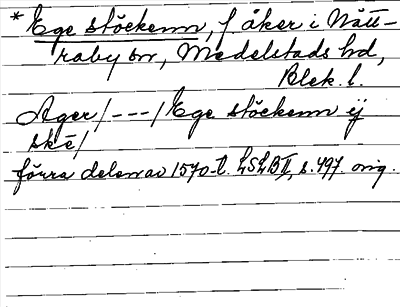 * Ege stöckenn, f åker i Nätt-
raby sn, Medelstads hd,
Blek. l.
Ager/---/Ege stöckenn ij
skē/
förra delen av 1570-t. LSLB II, s. 497. orig.